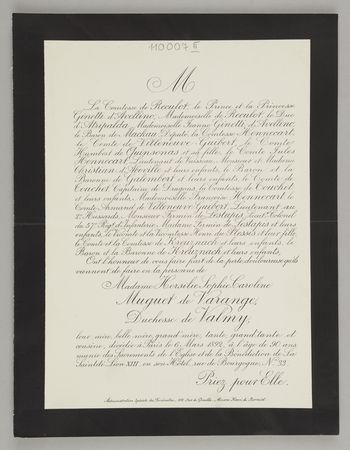 110007 II
M
La Comtesse de Reculot, le Prince et la Princesse
Ginetti d'Avellino, Mademoiselle de Reculot, le Duc
d'Atripalda, Mademoiselle Jeanne Ginetti d'Avellino,
le Baron de Mackau, Député, la Comtesse Honnecart,
le Comte de Villeneuve-Guibert, le Comte
Humbert de Quinsonas et sa fille, le Comte Jules
Honnecart, Lieutenant de Vaisseau, Monsieur et Madame
Christian d'Aboville et leurs enfants, le Baron et la
Baronne de Galembert et leurs enfants, le Comte de
Couchet, Capitaine de Dragons, la Comtesse de Couchet
et leurs enfants, Mademoiselle Françoise Honnecart, le
Comte Armand de Villeneuve-Guibert, Lieutenant au
Hussards, Monsieur Firmin de Lestapis, Lieut. Colonel
du 57e Régt. d'Infanterie, Madame Firmin de Lestapis et leurs
enfants, le Vicomte et la Vicomtesse du Plessis et leur fille,
le Comte et la Comtesse de Kreuznach et leurs enfants, le
Baron et la Baronne de Kreuznach et leurs enfants,
Ont l'honneur de vous faire part de la perte douloureuse qu'ils
viennent de faire en la personne de
Madame Hersilie Sophie Caroline
Muguet de Varange,
Duchesse de Valmy,
leur mère, belle-mère, grand'mère, tante, grand'tante et
cousine, décédée à Paris le 6 Mars 1892, à l'âge de 90 ans,
munie des Sacrements de l'Eglise et de la Bénédiction de Sa
Sainteté Léon XIII, en son Hôtel, rue de Bourgogne, No. 33.
Priez pour Elle.
Administration Spéciale des Funérailles, Rue de